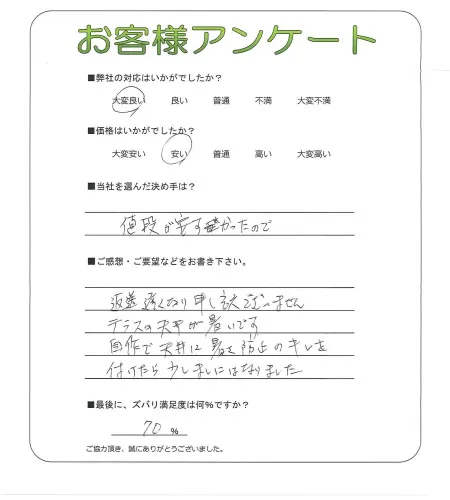 お客様アンケート
■弊社の対応はいかがでしたか？
大変良い 良い 普通 不満 大変不満
■価格はいかがでしたか？
大変安い 安い 普通 高い 大変高い
■当社を選んだ決め手は？
値段が安かったので
■ご感想・ご要望などをお書き下さい。
返送遅くなり申し訳ございません
テラスの天井が暑いです
自作で天井に暑さ防止のキレを
付けたら少しましにはなりました
■最後に、ズバリ満足度は何%ですか？
70 %
ご協力頂き、誠にありがとうございました。